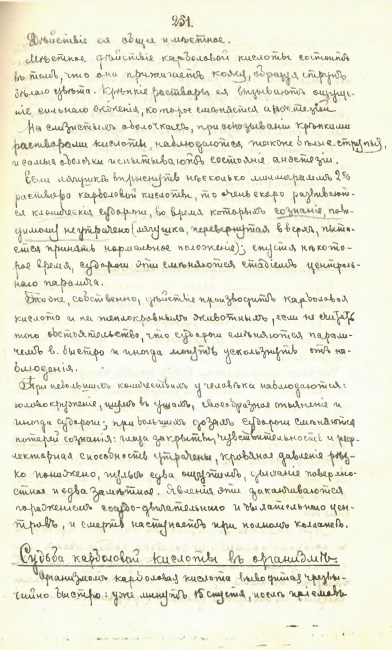 251.
Дѣйствіе ея общее и мѣстное.
Мѣстное дѣйствіе карболовой кислоты состоитъ
въ томъ, что она прижигаетъ кожу, образуя струпъ
бѣлаго цвѣта. Крѣпкіе растворы ея вызываютъ ощуще-
ніе сильнаго жженія, которое смѣняется анэстезіей.
На слизистыхъ оболочкахъ, при смазываніи крѣпкими
растворами кислоты, наблюдаются такоже бѣлые струпья,
и самыя оболочки испытываютъ состояніе анэстезіи.
Если лягушкѣ впрыснуть нѣсколько миллиграммъ 2%
раствора карболовой кислоты, то очень скоро развивают-
ся клоническія судороги, во время которыхъ сознаніе, пови-
димому не утрачено (лягушка, перевернутая вверхъ, пыта-
ется принять нормальное положеніе); спустя нѣкото-
рое время, судороги эти смѣняются стадіемъ централь-
наго паралича.
То же, собственно, дѣйствіе производитъ карболовая
кислота и на теплокровныхъ животныхъ, если не считать
того обстоятельства, что судороги смѣняются парали-
чемъ в. быстро и иногда могутъ ускользнуть отъ на-
блюденія.
При небольшихъ количествахъ у человѣка наблюдаются:
головокруженіе, шумъ въ ушахъ, своеобразное опьяненіе и
иногда судороги; при большихъ дозахъ судороги смѣняются
потерей сознанія: глаза закрыты, чувствительность и реф-
лекторная способность утрачены, кровяное давленіе рѣз-
ко понижено, пульсъ едва ощутимъ, дыханіе поверхно-
стное и едва замѣтное. Явленія эти заканчиваются
пораженіемъ сосудо-двигательнаго и дыхательнаго цен-
тровъ, и смерть наступаетъ при полномъ коллапсѣ.
Судьба карболовой кислоты въ организмѣ.
Организмомъ карболовая кислота выводится чрезвы-
чайно быстро: уже минутъ 15 спустя, послѣ пріемовъ